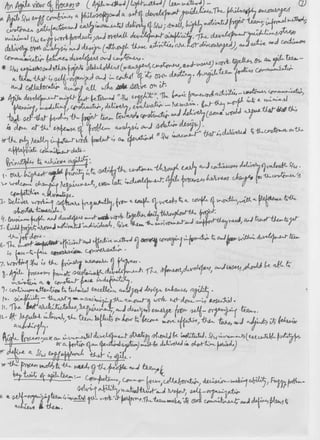 An Agile view of Process (Agile method / Light method / Lean method)
* Agile S/w engg combines a philosophy and a set of development guidelines. The philosophy encourages
customer satisfaction and early incremental delivery of S/w; small, highly motivated project teams; informal methods;
minimal S/w engg work products, and overall development simplicity. The development guidelines stress
delivery over analysis and design (although these activities are not discouraged), and active and continuous
communication between developers and customers.
* S/w engineers and other project stakeholders (managers, customers, end users) work together on an agile team —
a team that is self-organizing and in control of its own destiny. An agile team fosters communication
and collaboration among all who serve on it.
* Agile development might best be termed "S/w engg lite". The basic framework activities — customer communication,
planning, modeling, construction, delivery, evaluation — remain. But they morph into a minimal
task set that pushes the project team towards construction and delivery (some would argue that this
is done at the expense of problem analysis and solution design).
* the only really important work product is an operational "S/w increment" that is delivered to the customer on the
appropriate commitment date.
Principles to achieve agility:
1. Our highest priority is to satisfy the customer through early and continuous delivery of valuable S/w.
2. welcome changing requirements, even late in development. Agile processes harness change for the customer's
competitive advantage.
3. Deliver working software frequently, from a couple of weeks to a couple of months, with a preference to the
shorter timescale.
4. Business people and developers must work together daily throughout the project.
5. Build projects around motivated individuals. Give them the environment and support they need, and trust them to get
the job done.
6. The most efficient and effective method of conveying information to and from within development team
is face-to-face conversation.
7. working S/w is the primary measure of progress.
8. Agile processes promote sustainable development. The sponsors, developers, and users should be able to
maintain a constant pace indefinitely.
9. continuous attention to technical excellence and good design enhances agility.
10. simplicity — the art of maximizing the amount of work not done — is essential.
11. The best architectures, requirements, and designs emerge from self-organizing teams.
12. At regular intervals, the team reflects on how to become more effective, then tunes and adjusts its behavior
accordingly.
Agile Process: an incremental development strategy should be instituted. S/w increments (executable prototypes
or a portion of an operational system) must be delivered in short time periods)
* define a S/w engg approach that is agile.
* the process molds to the needs of the people and team
key traits of agile team :— Competence, common focus, collaboration, decision-making ability, fuzzy problem
solving ability, mutual trust and respect, self-organization
* a self-organizing team work it performs. The team makes its own commitments and defines plans to
achieve them.